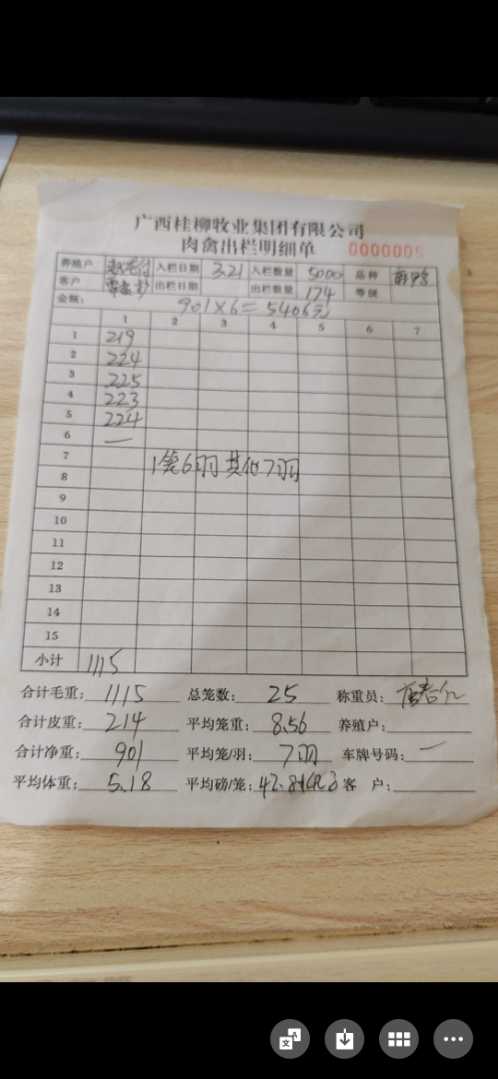 广西桂柳牧业集团有限公司
肉禽出栏明细单 0000005
养殖户 入栏日期 3.21 入栏数量 5000 品种
客户 出栏日期 出栏数量 174 等级
金额: 901×6=5406元
1 2 3 4 5 6 7
1 219
2 224
3 225
4 223
5 224
6 —
7
8 1笼6羽 其他7羽
9
10
11
12
13
14
15
小计 1115
合计毛重: 1115 总笼数: 25 称重员:
合计皮重: 214 平均笼重: 8.56 养殖户:
合计净重: 901 平均笼/羽: 7羽 车牌号码: —
平均体重: 5.18 平均磅/笼: 客 户: